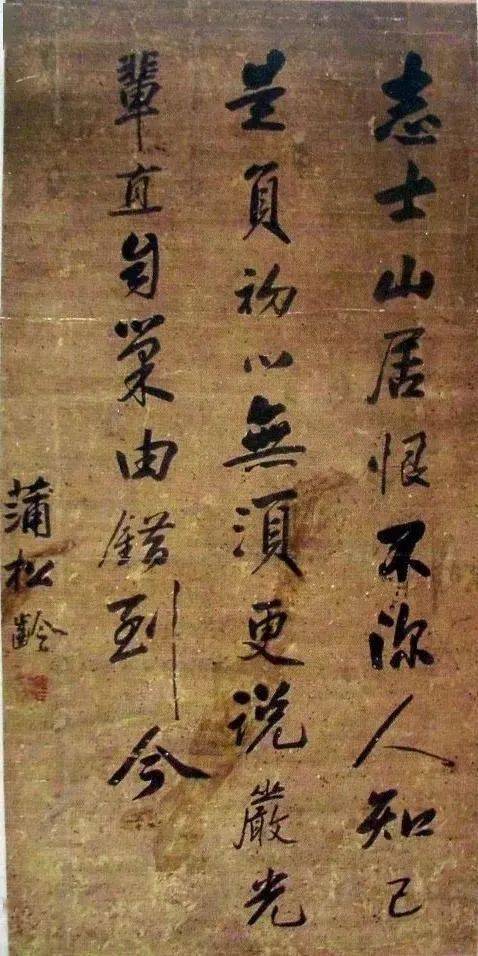 志士山居恨不深人知己
是負初心無須更説嚴光
輩直自巢由錯到今
蒲松齡